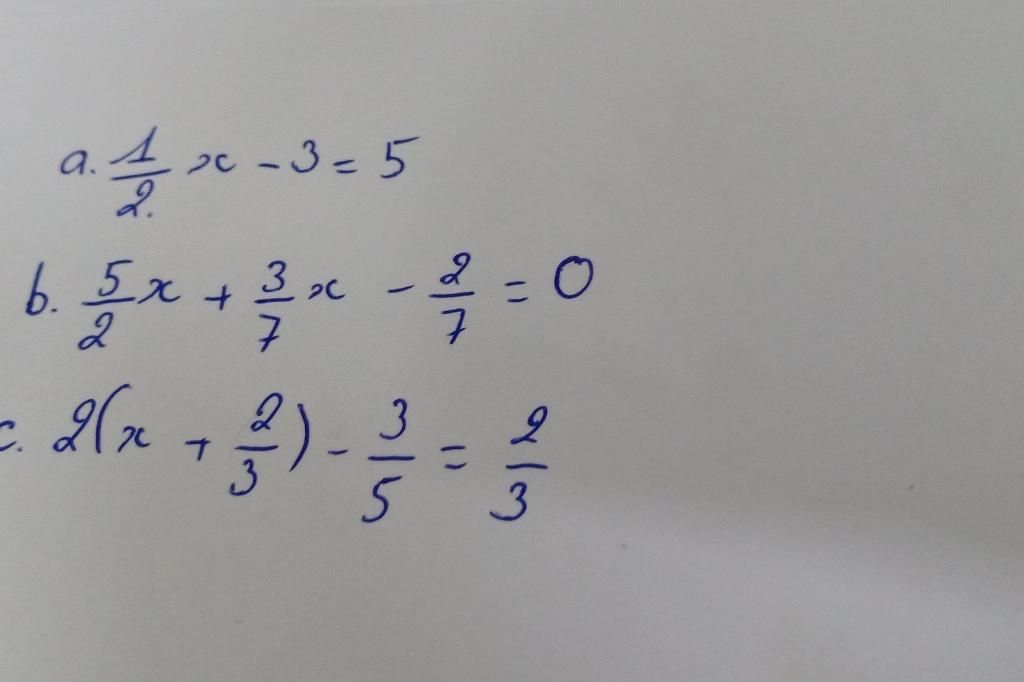 a. 1/2 x - 3 = 5
b. 5/2 x + 3/7 x - 2/7 = 0
c. 2(x + 2/3) - 3/5 = 2/3